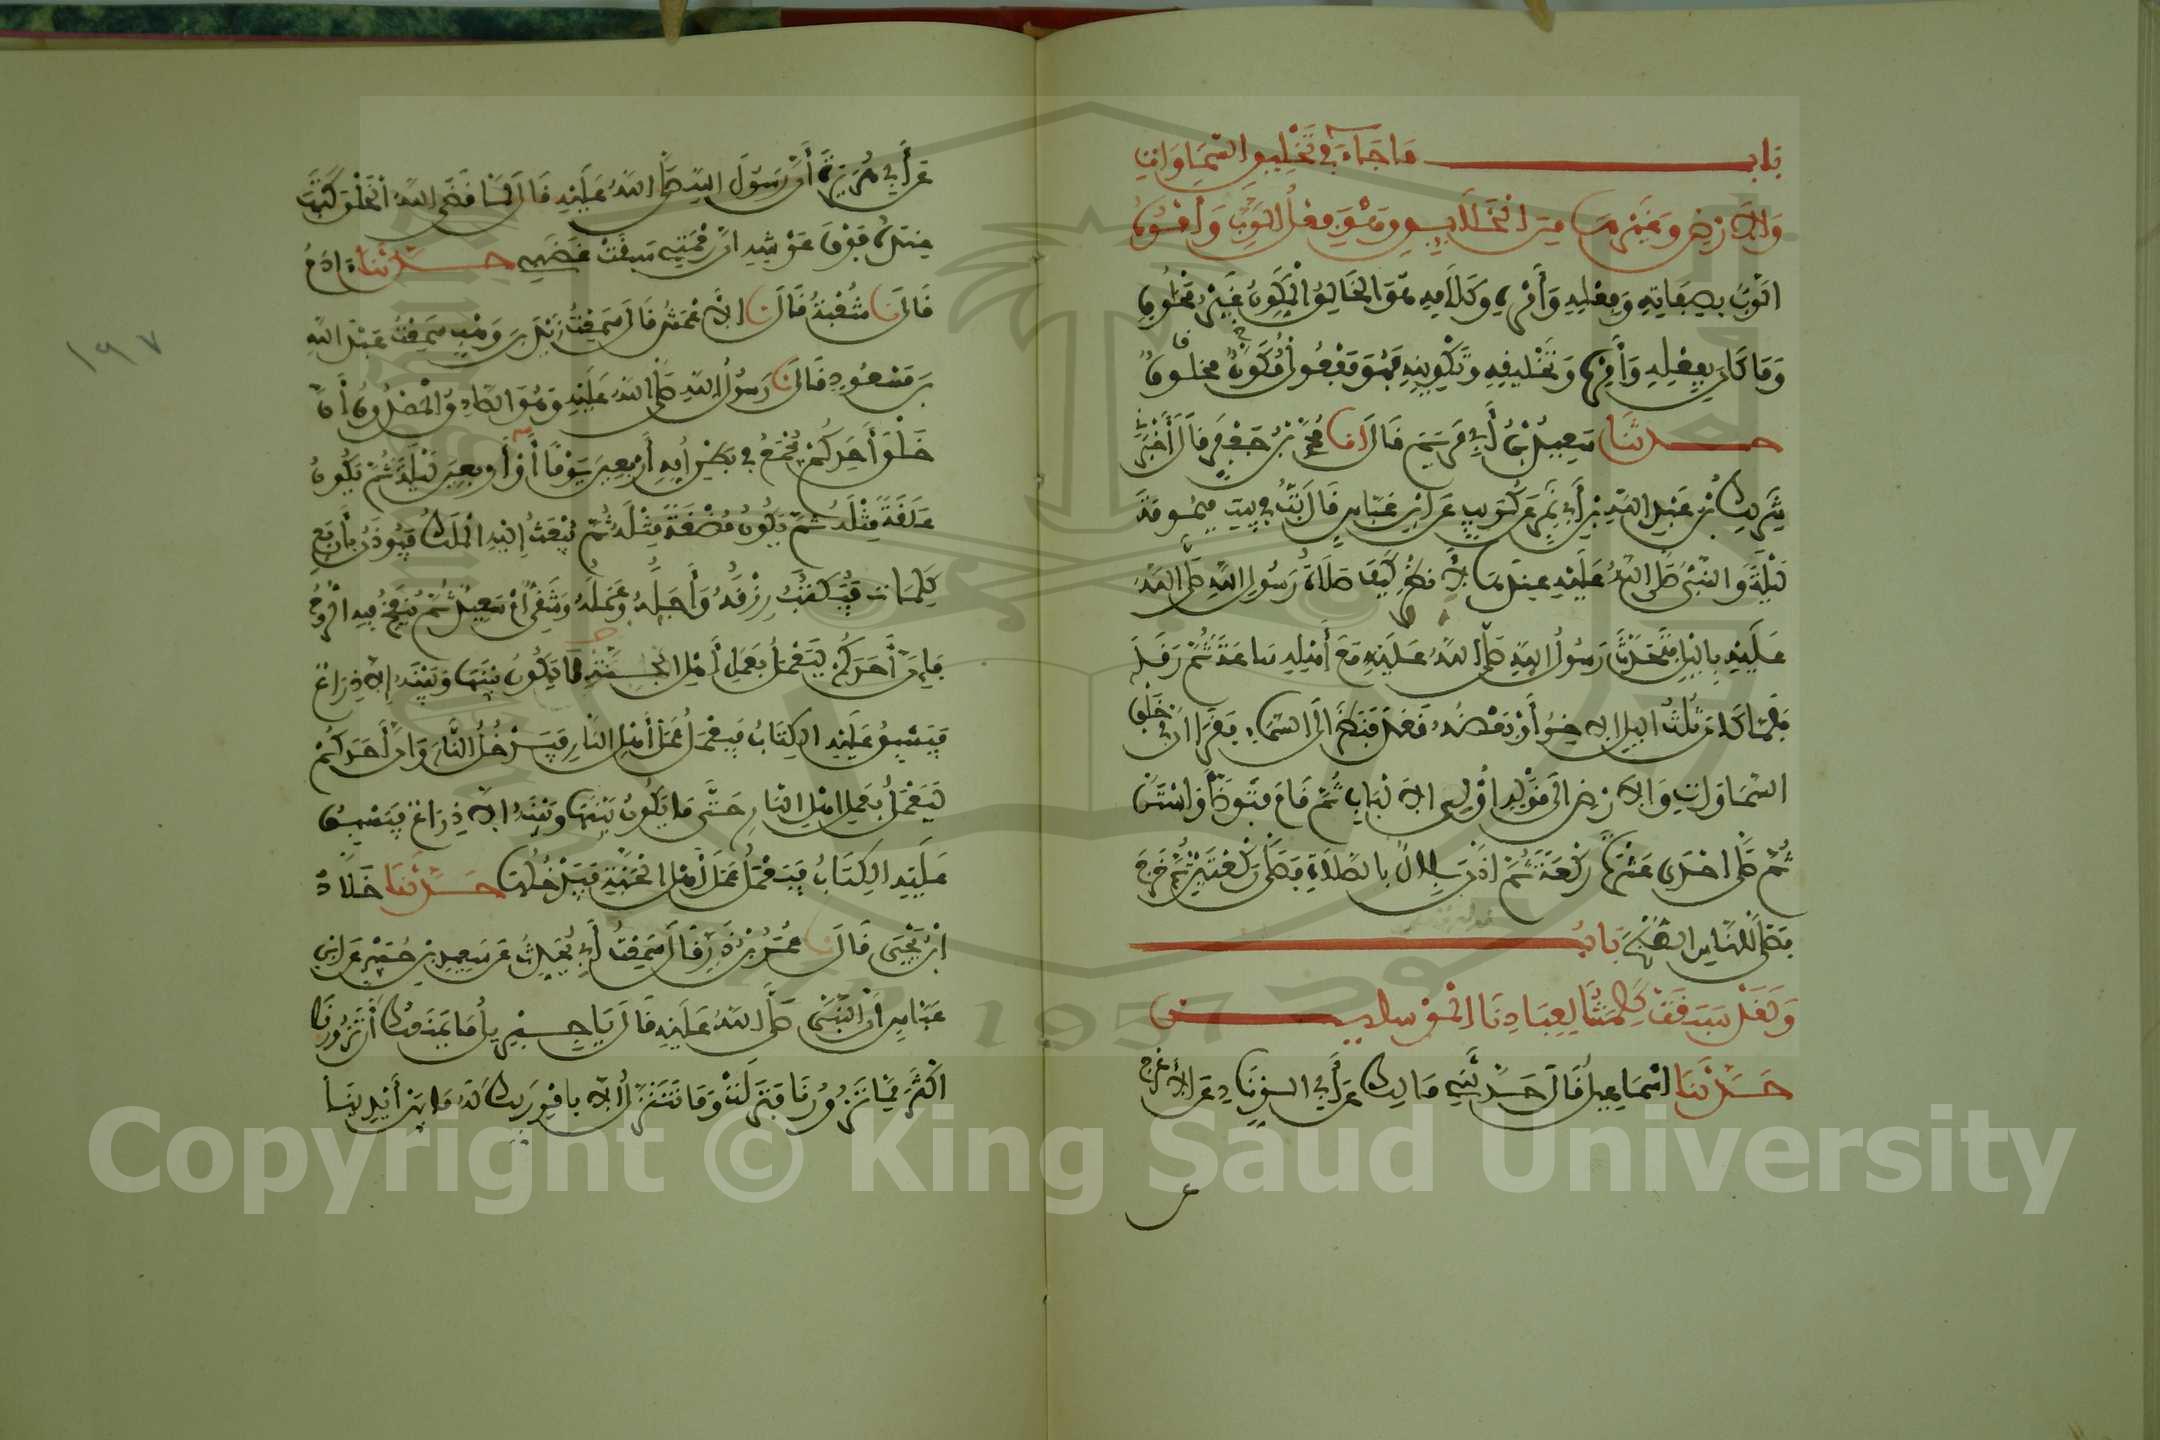 باب ما جاء في تخليق السماوات
والارض وغيرها من الخلايق وهو فعل الرب وأمره
فالرب بصفاته وفعله وأمره وكلامه هو الخالق المكون غير مخلوق
وما كان بفعله وأمره وتخليقه وتكوينه فهو مفعول مكون مخلوق
حدثنا سعيد بن أبي مريم قال انا محمد بن جعفر قال أخبرني
شريك بن عبد الله بن أبي نمر عن كريب عن ابن عباس قال بت في بيت ميمونة
ليلة والنبي صلى الله عليه عندها لأنظر كيف صلاة رسول الله صلى الله
عليه بالليل فتحدث رسول الله صلى الله عليه مع أهله ساعة ثم رقد
فلما كان ثلث الليل الاخر أو بعضه قعد فنظر الى السماء فقرا ان في خلق
السماوات والارض الى قوله لأولي الالباب ثم قام فتوضأ واستن
ثم صلى احدى عشرة ركعة ثم اذن بلال بالصلاة فصلى ركعتين ثم خرج
فصلى للناس الصبح باب
ولقد سبقت كلمتنا لعبادنا المرسلين
حدثنا اسماعيل قال حدثني مالك عن أبي الزناد عن الأعرج
عن أبي هريرة أن رسول الله صلى الله عليه قال لما قضى الله الخلق كتب
عنده فوق عرشه ان رحمتي سبقت غضبي حدثنا ادم
قال نا شعبة قال نا الاعمش قال سمعت زيد بن وهب سمعت عبد الله
بن مسعود قال نا رسول الله صلى الله عليه وهو الصادق المصدوق أن
خلق أحدكم يجمع في بطن أمه أربعين يوما أو أربعين ليلة ثم يكون
علقة مثله ثم يكون مضغة مثله ثم يبعث إليه الملك فيوذن بأربع
كلمات فيكتب رزقه وأجله وعمله وشقي أم سعيد ثم ينفخ فيه الروح
فإن أحدكم ليعمل بعمل أهل الجنة حتى ما يكون بينها وبينه إلا ذراع
فيسبق عليه الكتاب فيعمل بعمل أهل النار فيدخل النار وان أحدكم
ليعمل بعمل اهل النار حتى ما يكون بينها وبينه الا ذراع فيسبق
عليه الكتاب فيعمل عمل أهل الجنة فيدخلها حدثنا خلاد
ابن يحيى قال نا عمر بن ذر قال سمعت أبي يحدث عن سعيد بن جبير عن ابن
عباس أن النبي صلى الله عليه قال يا جبريل ما يمنعك أن تزورنا
اكثر مما تزورنا فنزلت وما نتنزل إلا بامر ربك له ما بين أيدينا
١٩٧
1957
Copyright © King Saud University